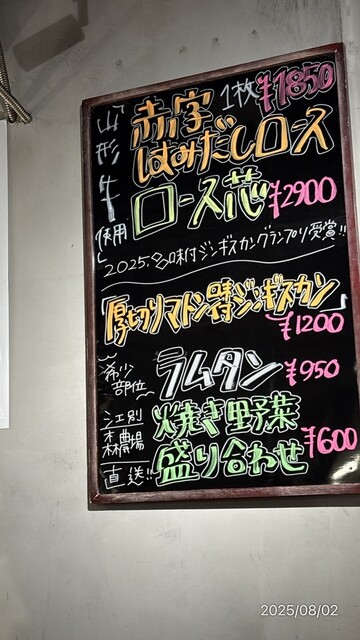 「山形牛」使用
赤字 1枚¥1850
はみだしロース
ロース芯 ¥2900
2025.名味付ジンギスカングランプリ受賞!!
「厚切りマトン味付ジンギスカン」
¥1200
希少部位 ラムタン ¥950
江別 焼き野菜
森農場 盛り合わせ ¥600
直送!!
2025/08/02